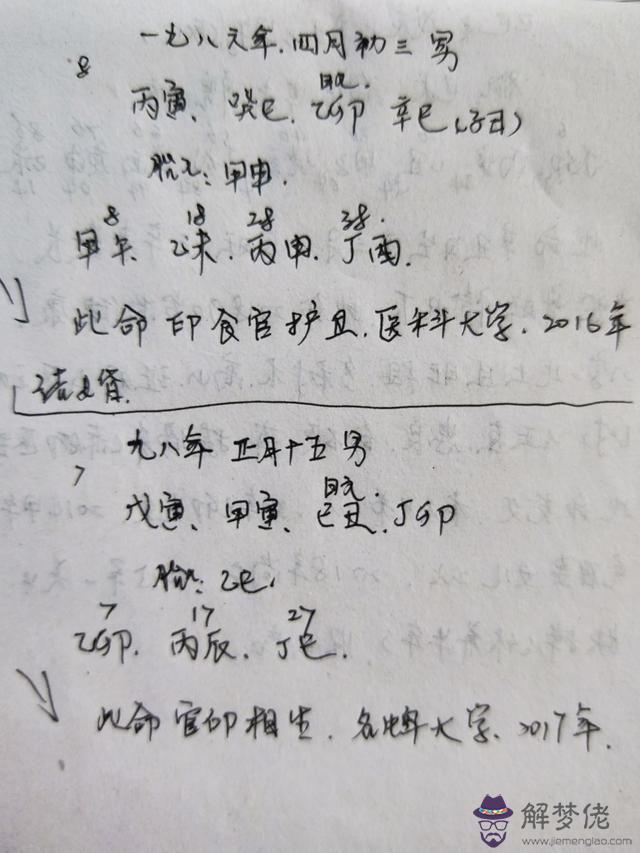 一九八六年.四月初三男
8
日元:
丙寅、癸巳、乙卯 辛巳(子丑)
胎元:甲申.
8 18 28 38.
甲午、乙未、丙申、丁酉.
此命 印食官护且.医科大学、2016年
九八年 正月十五男
7
日元:
戊寅、甲寅、己丑、丁卯
胎元:乙巳,
7 17 27
乙卯、丙辰、丁巳.
此命 官印相生.名牌大学、2017年.
解梦佬
www.jiemenglao.com